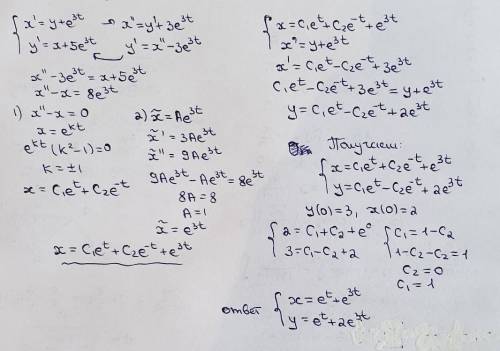 { x' = y + e^{3t} → x'' = y' + 3e^{3t}
{ y' = x + 5e^{3t}   y' = x'' - 3e^{3t}
x'' - 3e^{3t} = x + 5e^{3t}
x'' - x = 8e^{3t}
1) x'' - x = 0
x = e^{kt}
e^{kt}(k² - 1) = 0
k = ±1
x = C₁e^t + C₂e^{-t}
2) x̃ = Ae^{3t}
x̃' = 3Ae^{3t}
x̃'' = 9Ae^{3t}
9Ae^{3t} - Ae^{3t} = 8e^{3t}
8A = 8
A = 1
x̃ = e^{3t}
x = C₁e^t + C₂e^{-t} + e^{3t}
{ x = C₁e^t + C₂e^{-t} + e^{3t}
{ x' = y + e^{3t}
x' = C₁e^t - C₂e^{-t} + 3e^{3t}
C₁e^t - C₂e^{-t} + 3e^{3t} = y + e^{3t}
y = C₁e^t - C₂e^{-t} + 2e^{3t}
Получаем:
{ x = C₁e^t + C₂e^{-t} + e^{3t}
{ y = C₁e^t - C₂e^{-t} + 2e^{3t}
y(0) = 3, x(0) = 2
{ 2 = C₁ + C₂ + e⁰   { C₁ = 1 - C₂
{ 3 = C₁ - C₂ + 2   { 1 - C₂ - C₂ = 1
C₂ = 0
C₁ = 1
ответ { x = e^t + e^{3t}
{ y = e^t + 2e^{3t}